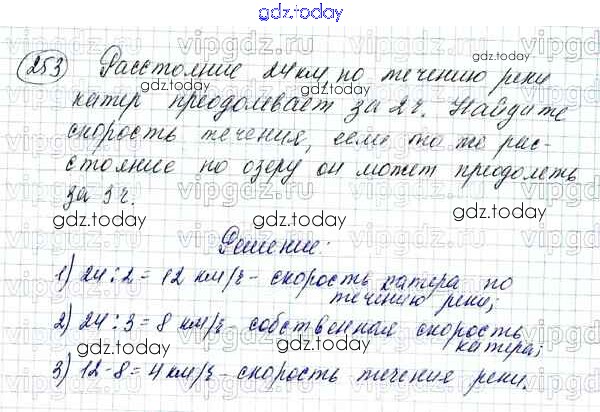 gdz.today
253 Расстояние 24 км по течению реки
катер преодолевает за 2 ч. Найдите
скорость течения, если то же рас-
стояние по озеру он может преодолеть
за 3 ч.
Решение:
1) 24 : 2 = 12 км/ч - скорость катера по
течению реки;
2) 24 : 3 = 8 км/ч собственная скорость
катера;
3) 12 - 8 = 4 км/ч - скорость течения реки.